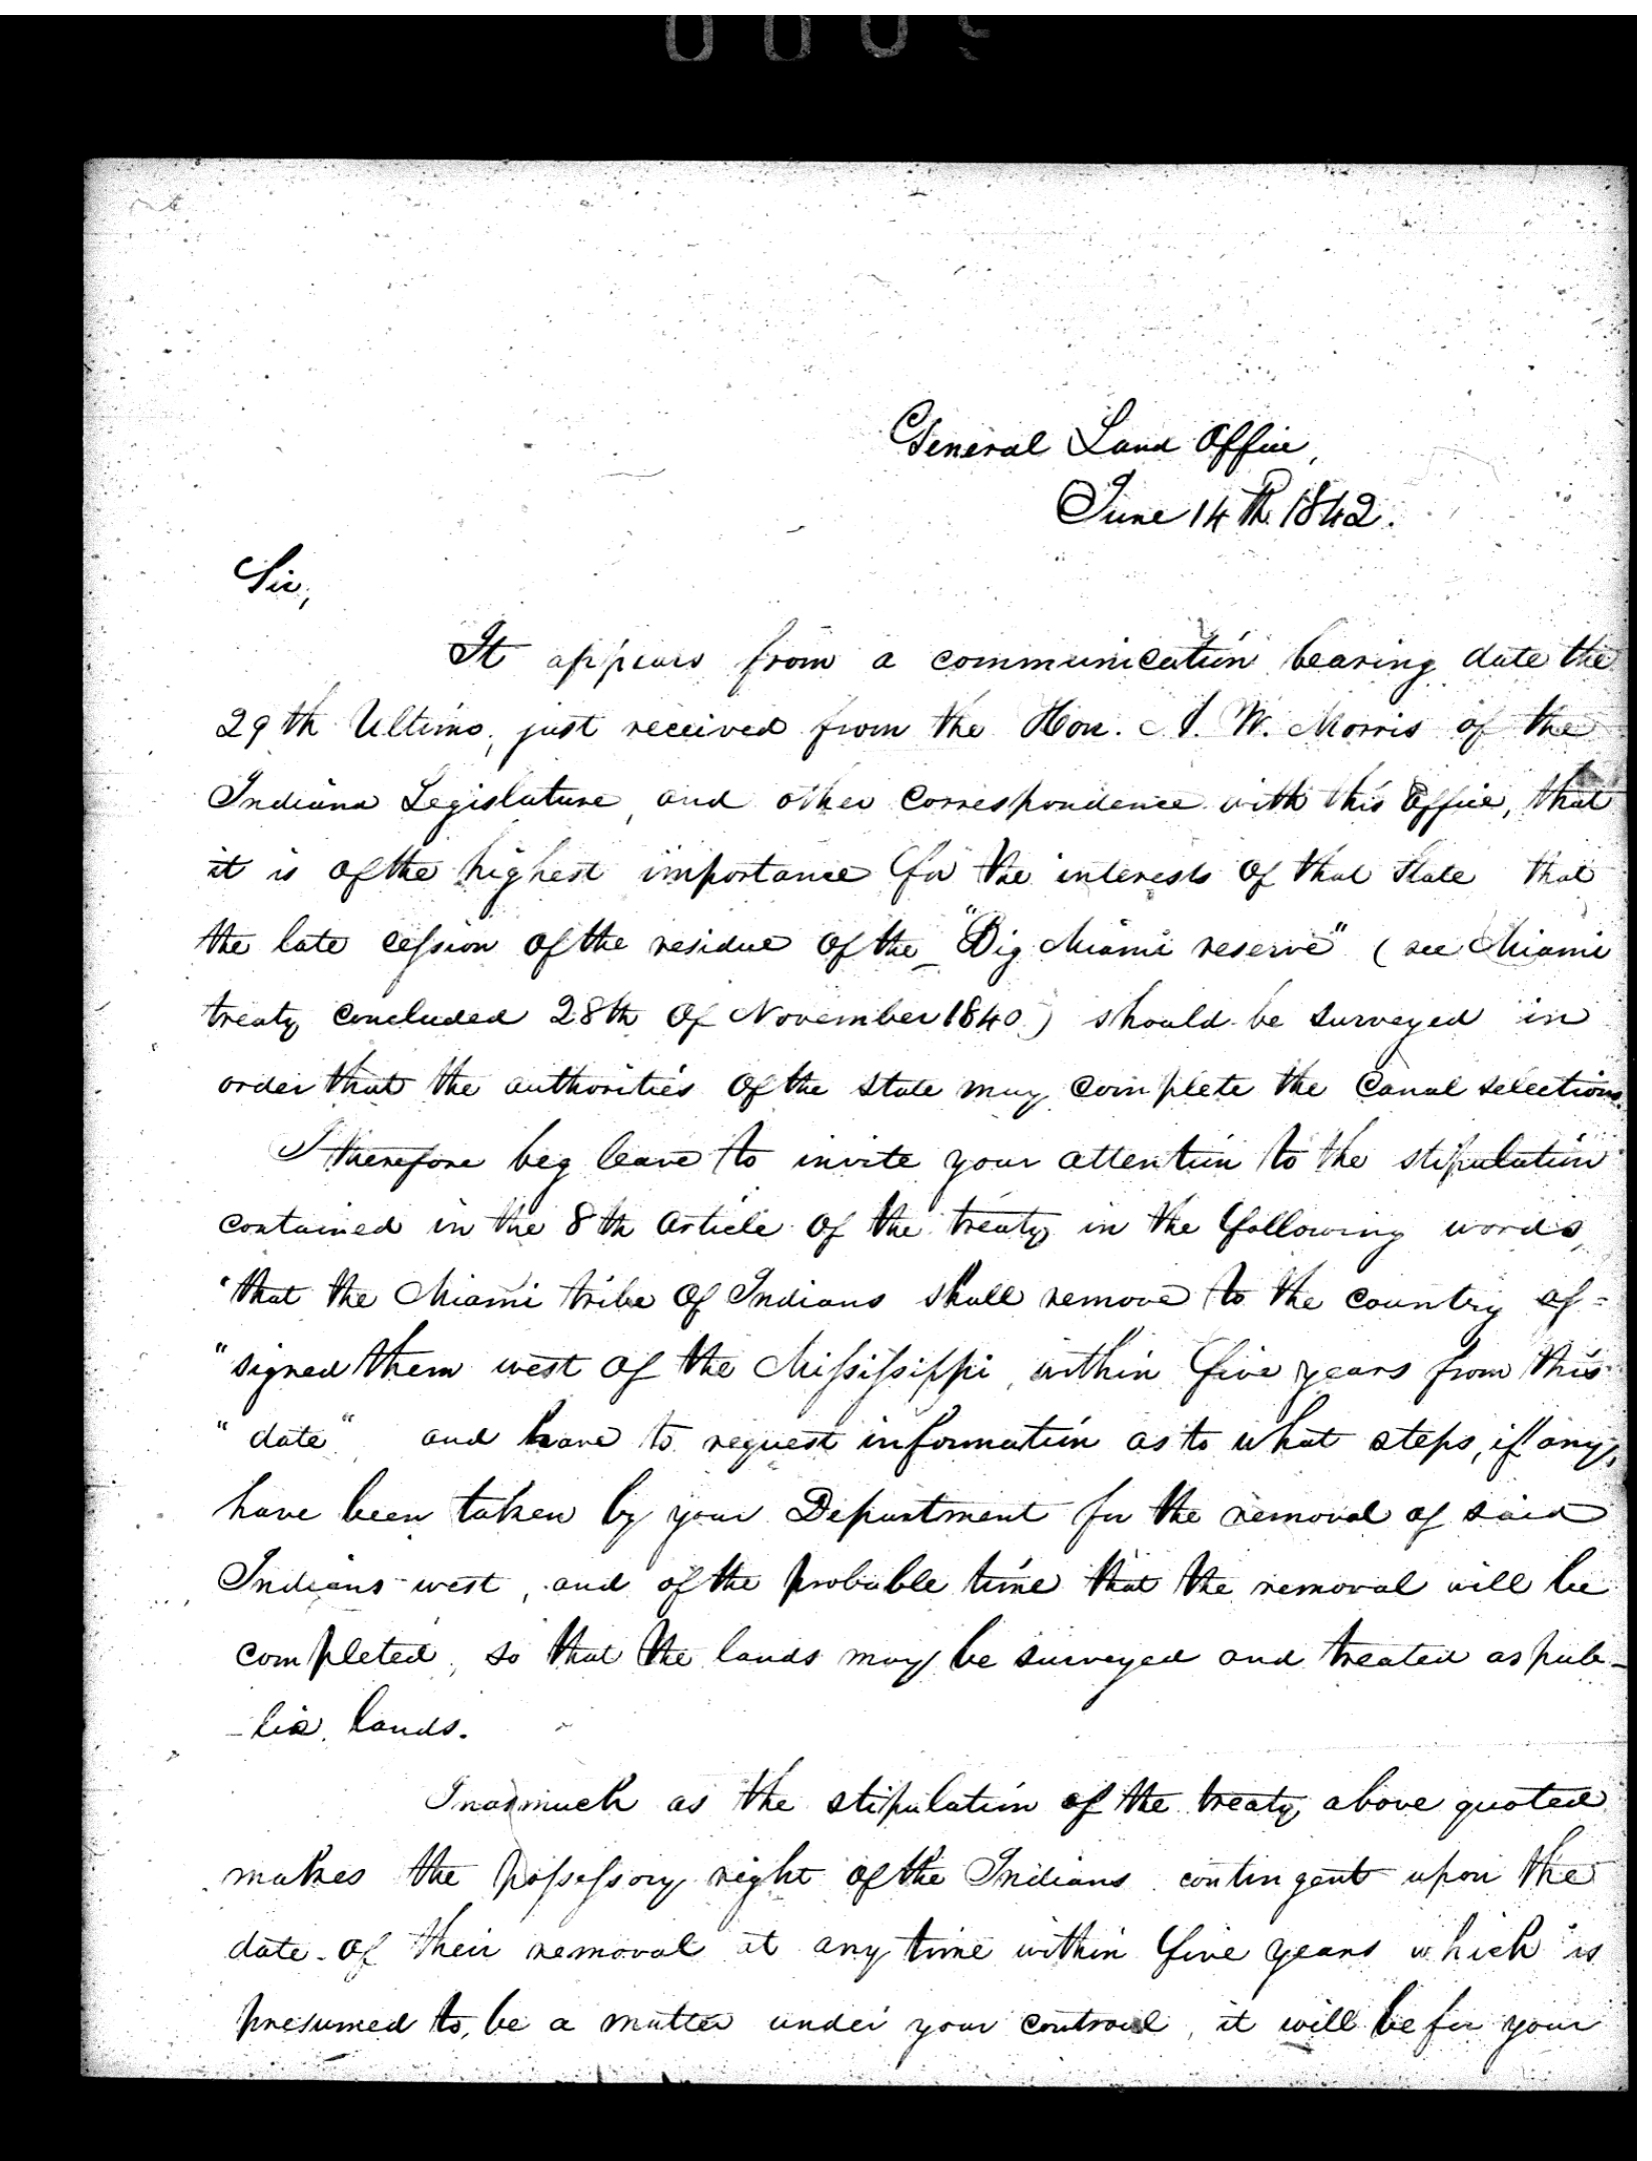 General Land Office,
June 14th. 1842.
Sir,
It appears from a communication bearing date the
29th Ultimo, just received from the Hon. W. Morris of the
Indiana Legislature, and other correspondence with this office, that
it is of the highest importance for the interests of that State that
the late cession of the residue of the "Big Miami reserve" (see Miami
treaty concluded 28th of November 1840) should be surveyed in
order that the authorities of the state may complete the Canal selections.
I therefore beg leave to invite your attention to the stipulation
contained in the 8th article of the treaty in the following words,
"that the Miami tribe of Indians shall remove to the country as=
"signed them west of the Mississippi, within five years from this
"date" and have to request information as to what steps, if any,
have been taken by your Department for the removal of said
Indians west, and of the probable time that the removal will be
completed, so that the lands may be surveyed and treated as pub-
-lic lands.
Inasmuch as the stipulation of the treaty above quoted
makes the possessory right of the Indians contingent upon the
date of their removal at any time within five years which is
presumed to be a matter under your control, it will be for your